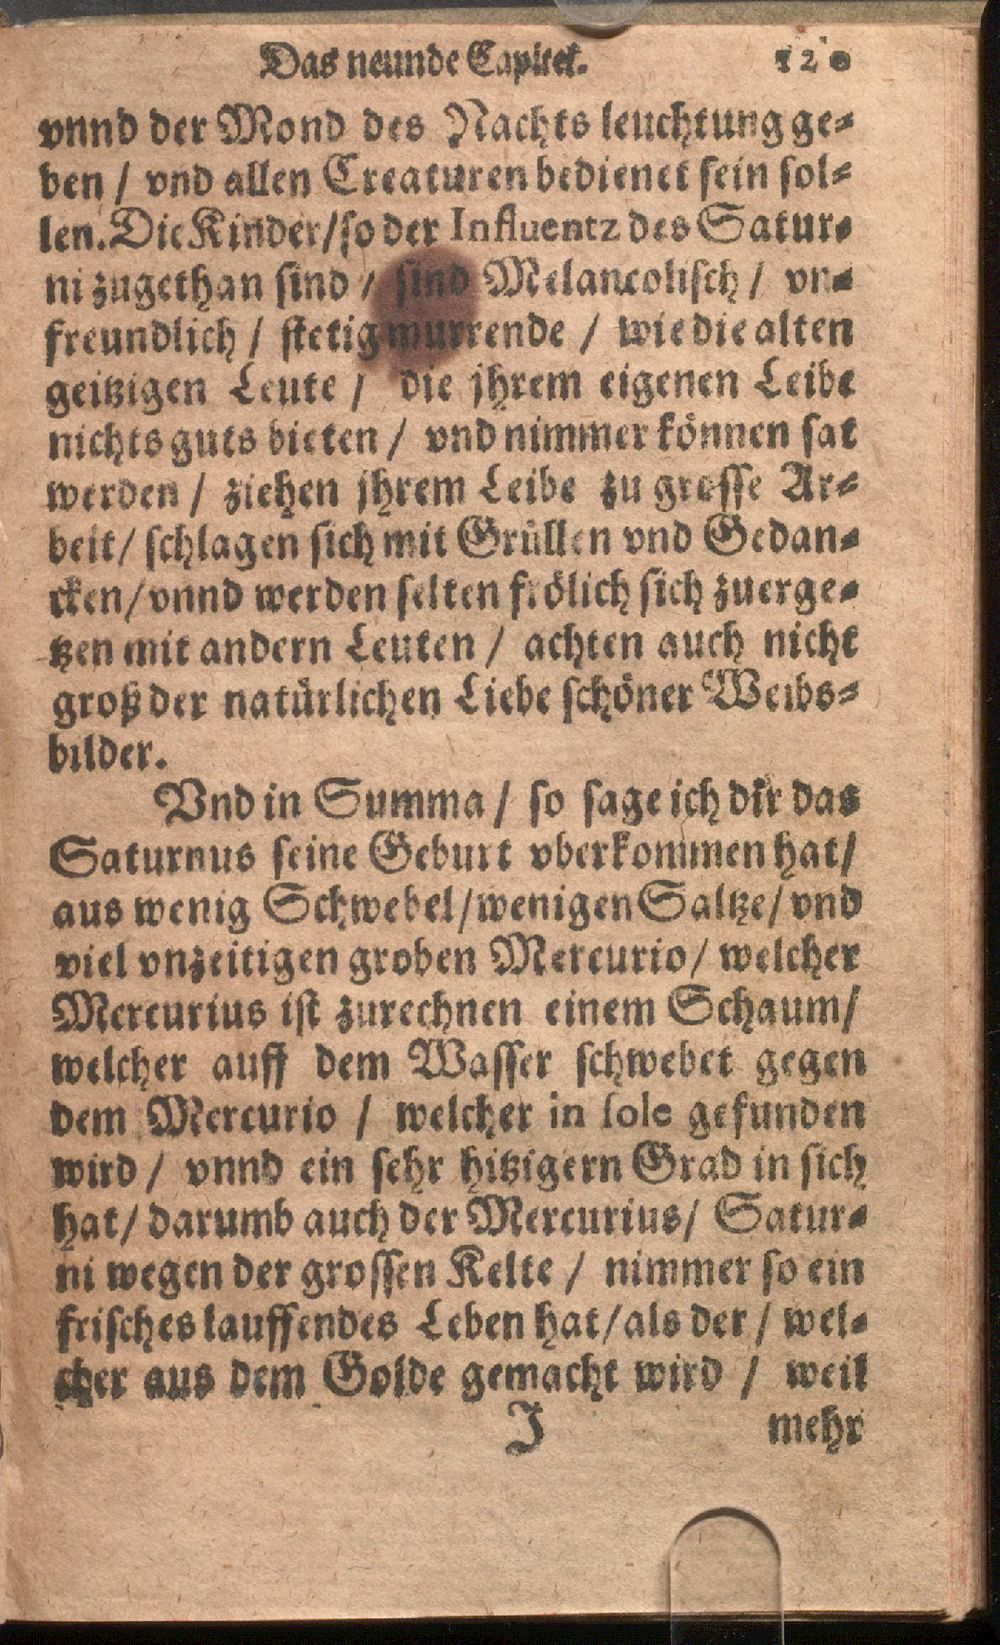 Das neunde Capitel. 120
vnnd der Mond des Nachts leuchtung ge-
ben / vnd allen Creaturen bedienet sein sol-
len. Die Kinder / so der Influentz des Satur-
ni zugethan sind / sind Melancolisch / vn-
freundlich / stetig murrende / wie die alten
geitzigen Leute / die jhrem eigenen Leibe
nichts guts bieten / vnd nimmer können sat
werden / ziehen jhrem Leibe zu grosse Ar-
beit / schlagen sich mit Grüllen vnd Gedan-
cken / vnnd werden selten frölich sich zuerge-
tzen mit andern Leuten / achten auch nicht
groß der natürlichen Liebe schöner Weibs-
bilder.
Vnd in Summa / so sage ich dir das
Saturnus seine Geburt vberkommen hat /
aus wenig Schwebel / wenigen Saltze / vnd
viel vnzeitigen groben Mercurio / welcher
Mercurius ist zurechnen einem Schaum /
welcher auff dem Wasser schwebet gegen
dem Mercurio / welcher in sole gefunden
wird / vnnd ein sehr hitzigern Grad in sich
hat / darumb auch der Mercurius / Satur-
ni wegen der grossen Kelte / nimmer so ein
frisches lauffendes Leben hat / als der / wel-
cher aus dem Golde gemacht wird / weil
J mehr